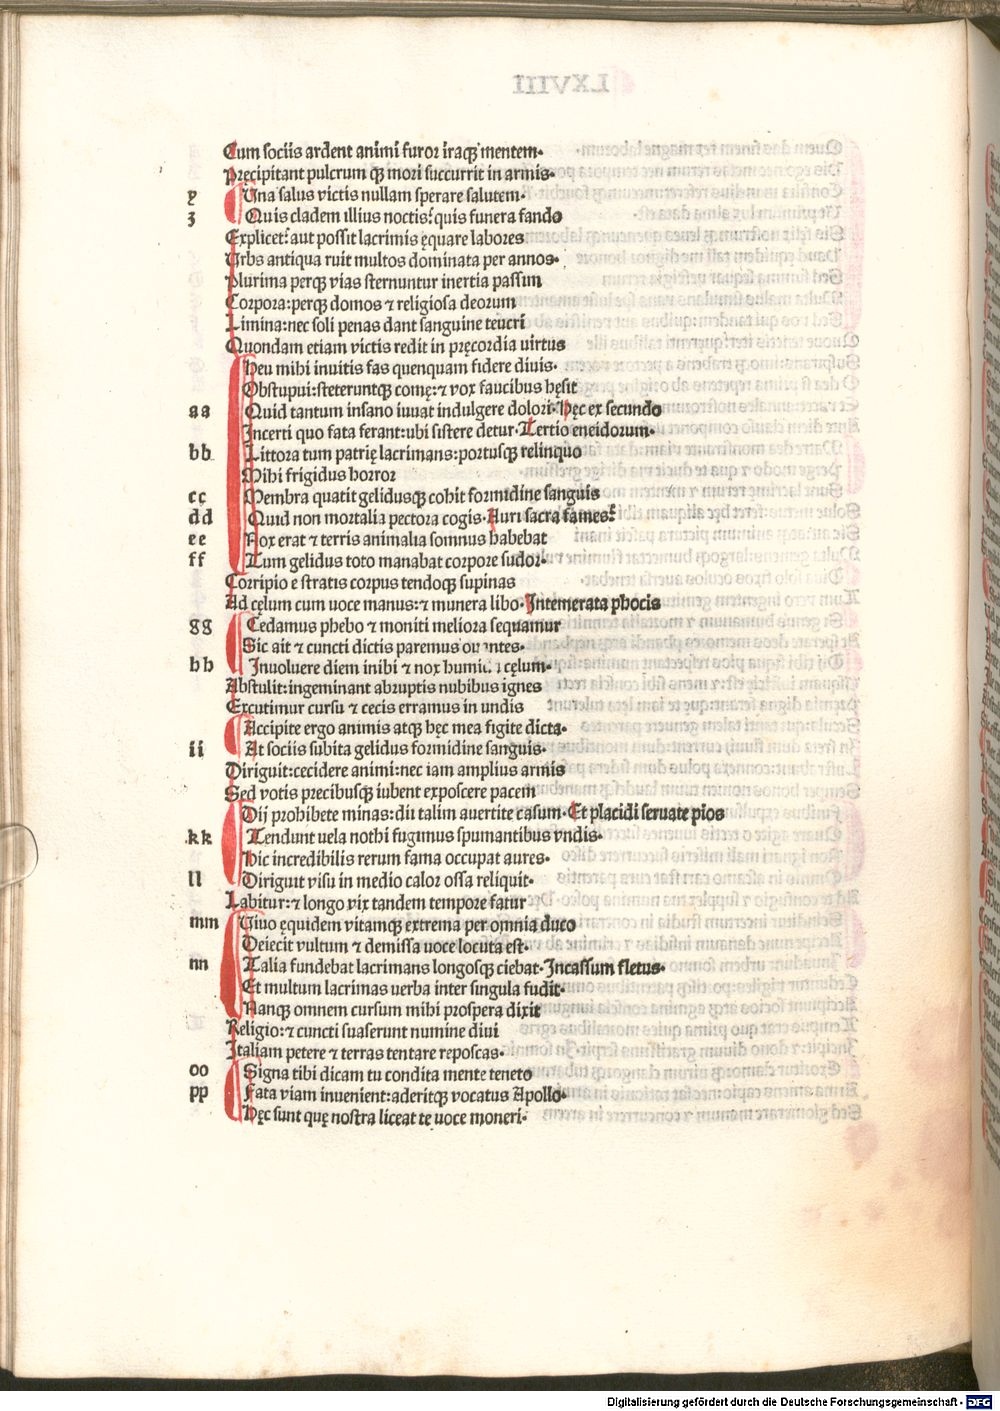 Cum sociis ardent animi furor iraqꝫ mentem·
Pręcipitant pulcrum qꝫ mori succurrit in armis·
y Una salus victis nullam sperare salutem·
z Quis cladem illius noctis: quis funera fando
Explicet: aut possit lacrimis ęquare labores
Urbs antiqua ruit multos dominata per annos·
Plurima perqꝫ vias sternuntur inertia passim
Corpora: perqꝫ domos ⁊ religiosa deorum
Limina: nec soli penas dant sanguine teucri
Quondam etiam victis redit in pręcordia uirtus
Heu mihi inuitis fas quenquam fidere diuis·
Obstupui: steteruntqꝫ comę: ⁊ vox faucibus hęsit
aa Quid tantum insano iuuat indulgere dolori· Hęc ex secundo
Incerti quo fata ferant: ubi sistere detur· Tertio eneidorum·
bb Littora tum patrię lacrimans: portusqꝫ relinquo
Mihi frigidus horror
cc Membra quatit gelidusqꝫ cohit formidine sanguis
dd Quid non mortalia pectora cogis· Auri sacra fames:
ee Nox erat ⁊ terris animalia somnus habebat
ff Tum gelidus toto manabat corpore sudor·
Corripio e stratis corpus tendoqꝫ supinas
Ad cęlum cum uoce manus: ⁊ munera libo· Intemerata phocis
gg Cedamus phebo ⁊ moniti meliora sequamur
Sic ait ⁊ cuncti dictis paremus
hh Inuoluere diem inibi ⁊ nox cęlum·
Abstulit: ingeminant abruptis nubibus ignes
Excutimur cursu ⁊ cecis erramus in undis
Accipite ergo animis atqꝫ hęc mea figite dicta·
ii At sociis subita gelidus formidine sanguis·
Diriguit: cecidere animi: nec iam amplius armis
Sed votis precibusqꝫ iubent exposcere pacem
Dij prohibete minas: dii talim auertite casum· Et placidi seruate pios
kk Tendunt uela nothi fugimus spumantibus vndis·
Hic incredibilis rerum fama occupat aures·
ll Diriguit visu in medio calor ossa reliquit·
Labitur: ⁊ longo vix tandem tempore fatur
mm Viuo ęquidem vitamqꝫ extrema per omnia duco
Deiecit vultum ⁊ demissa uoce locuta est·
nn Talia fundebat lacrimans longosqꝫ ciebat· Incassum fletus·
Et multum lacrimas uerba inter singula fudit·
Nanqꝫ omnem cursum mihi prospera dixit
Religio: ⁊ cuncti suaserunt numine diui
Italiam petere ⁊ terras tentare reposcas·
oo Signa tibi dicam tu condita mente teneto
pp Fata viam inuenient: aderitqꝫ vocatus Apollo·
Hęc sunt quę nostra liceat te uoce moneri·
Digitalisierung gefördert durch die Deutsche Forschungsgemeinschaft - DFG